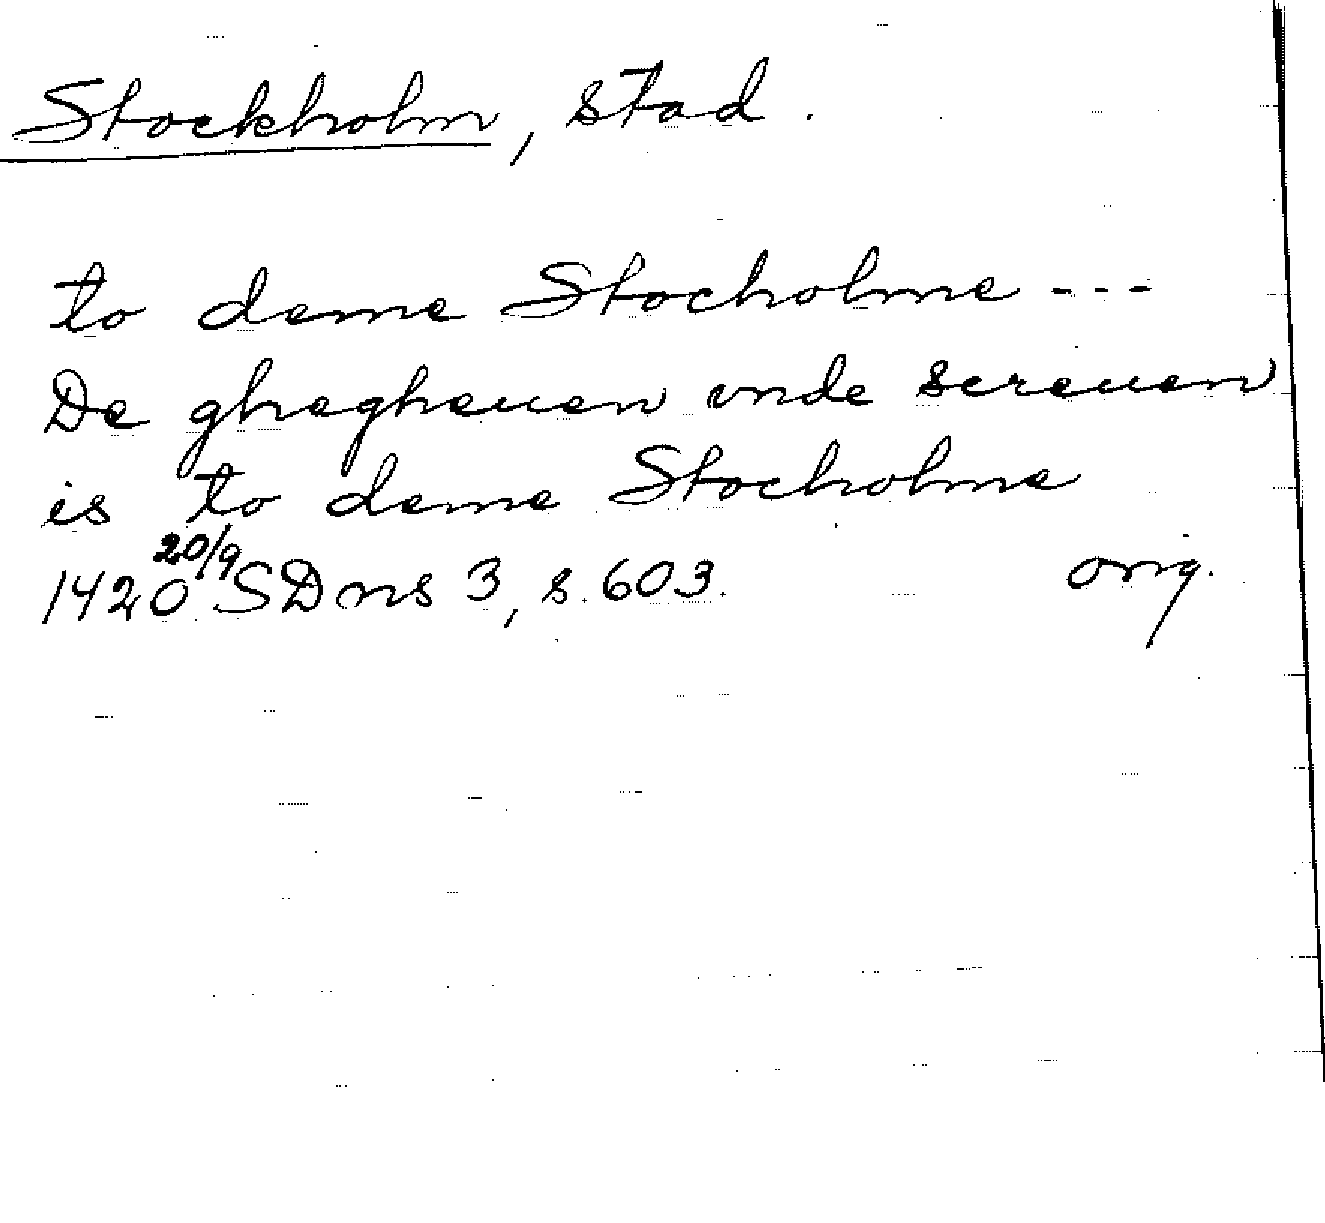 Stockholm, stad.
to deme Stocholme ---
De ghegheuen vnde screuen
is to deme Stocholme
1420 20/9 SDns 3, s. 603. orig.